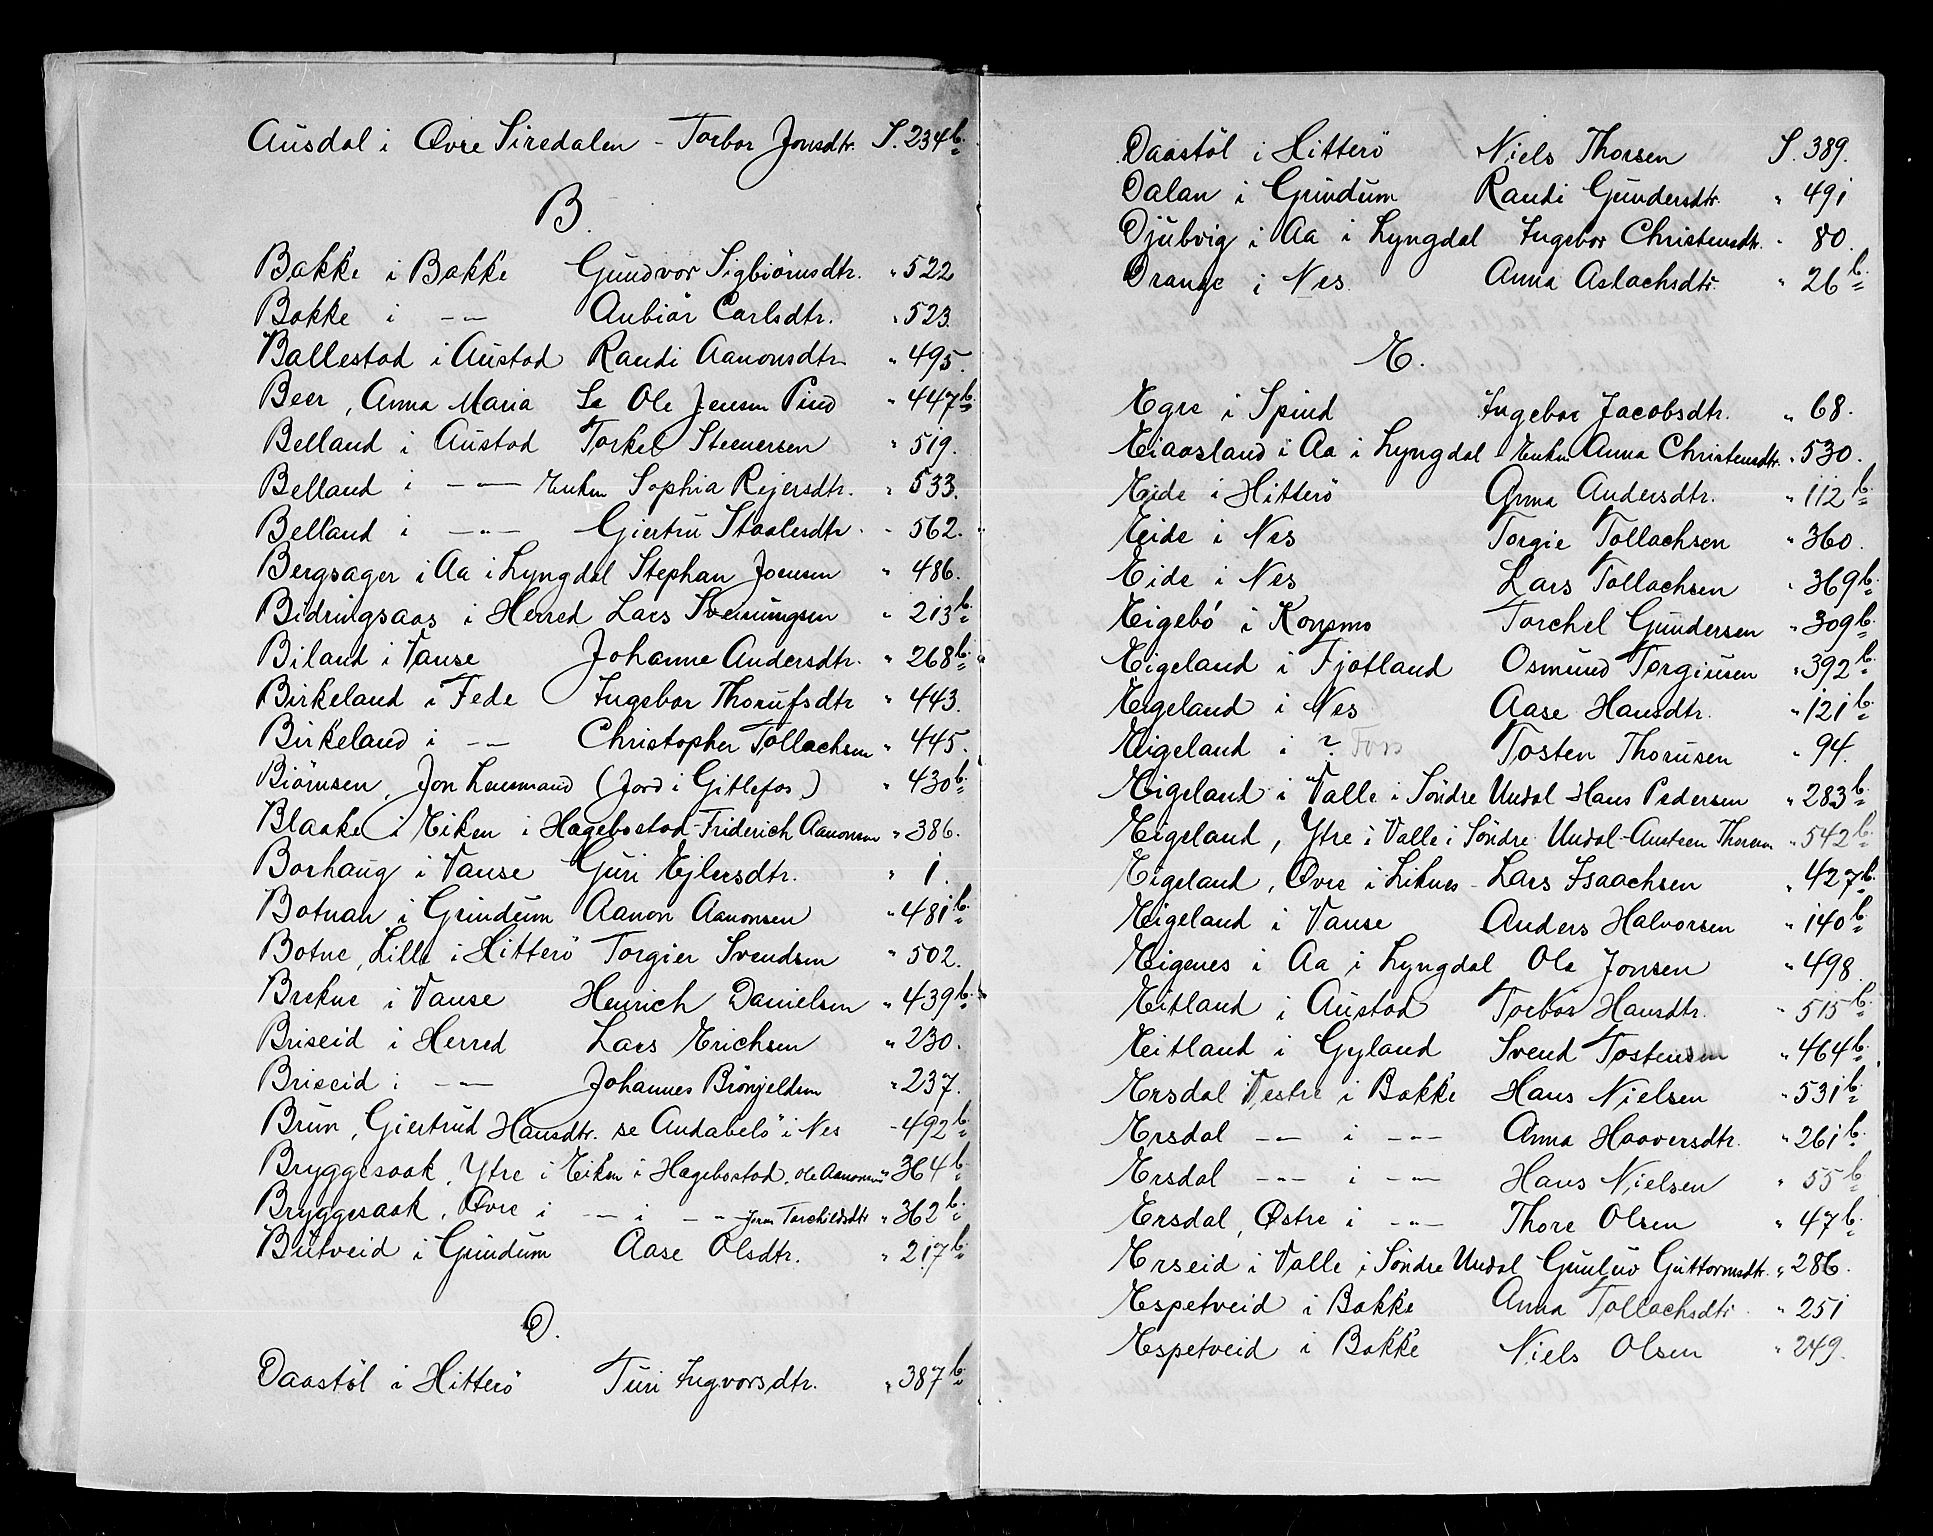 Ausdal i Øvre Siredalen - Torbor Jonsdtr. S. 234b.
B.
Bakke i Bakke Gundvor Sigbiörnsdtr. " 522
Bakke i -"- Anbiör Carlsdtr. " 523.
Ballestad i Austad Randi Aanonsdtr " 495.
Beer, Anna Maria Se Ole Jensen Pind " 447b.
Belland i Austad Torkel Steenersen " 519.
Belland i -"- Enken Sophia Rejersdtr. " 533.
Belland i -"- Giertru Staalesdtr. " 562.
Bergsager i Aa i Lyngdal Stephan Joensen " 486.
Bidringsaas i Herred Lars Sveinungsen " 213b.
Biland i Vanse Johanne Andersdtr. " 268b.
Birkeland i Fede Ingebor Thorufsdtr " 443.
Birkeland i -"- Christopher Tollachsen " 445.
Biörnsen, Jon Lensmand (Jord i Gitlefos.) " 430b.
Blaake i Eiken i Hægebostad - Friderich Aanonsen " 386.
Borhaug i Vanse Guri Ejlersdtr. " 1.
Botnan i Grindum Aanon Aanonsen " 481b.
Botne, Lille i Hitterö Torgier Svendsen " 502.
Brekne i Vanse Henrich Danielsen " 439b.
Briseid i Herred Lars Erichsen " 230.
Briseid i -"- Johannes Brönjeldsen " 237.
Brun, Giertrud Hansdtr. se Andabelö i Nes - 492b.
Bryggesaak, Ytre i Eiken i Hægebostad. Ole Aanonsen " 364b.
Bryggesaak, Øvre i -"- i -"- Joren Torchildsdtr " 362b.
Butveid i Grindum Aase Olsdtr. " 217b.
D.
Daastöl i Hitterö Turi Ingvorsdtr. " 387b.
Daastöl i Hitterö Niels Thorsen S. 389.
Dalan i Grindum Randi Gundersdtr. " 491
Djubvig i Aa i Lyngdal Ingebor Christensdtr. " 80.
Drange i Nes. Anna Aslachsdtr. " 26b.
E.
Egre i Spind Ingebor Jacobsdtr. " 68.
Eiaasland i Aa i Lyngdal Enken Anna Christensdtr. " 530.
Eide i Hitterö Anna Andersdtr. " 112b.
Eide i Nes Torgie Tollachsen " 360.
Eide i Nes Lars Tollachsen " 369b.
Eigebö i Konsmo Torchel Gundersen " 309b.
Eigeland i Fjotland Osmund Torgiusen " 392b.
Eigeland i Nes Aase Hansdtr. " 121b.
Eigeland i ? Fors Tosten Thorusen " 94.
Eigeland i Valle i Söndre Undal Hans Pedersen " 283b.
Eigeland, Ytre i Valle i Söndre Undal - Austeen Thorsen " 542b.
Eigeland, Øvre i Liknes - Lars Isaachsen " 427b.
Eigeland i Vanse Anders Halvorsen " 140b.
Eigenes i Aa i Lyngdal Ole Jonsen " 498.
Eitland i Austad Torbör Hansdtr. " 515b.
Eitland i Gyland Svend Tostensen " 464b.
Ersdal Vestre i Bakke Hans Nielsen " 531b.
Ersdal -"- i -"- Anna Haaversdtr. " 261b.
Ersdal -"- i -"- Hans Nielsen " 55b.
Ersdal, Østre i -"- Thore Olsen " 47b.
Erseid i Valle i Söndre Undal Gunluv Guttormsdtr. " 286.
Espetveid i Bakke Anna Tollachsdtr. " 251
Espetveid i Bakke Niels Olsen " 249.